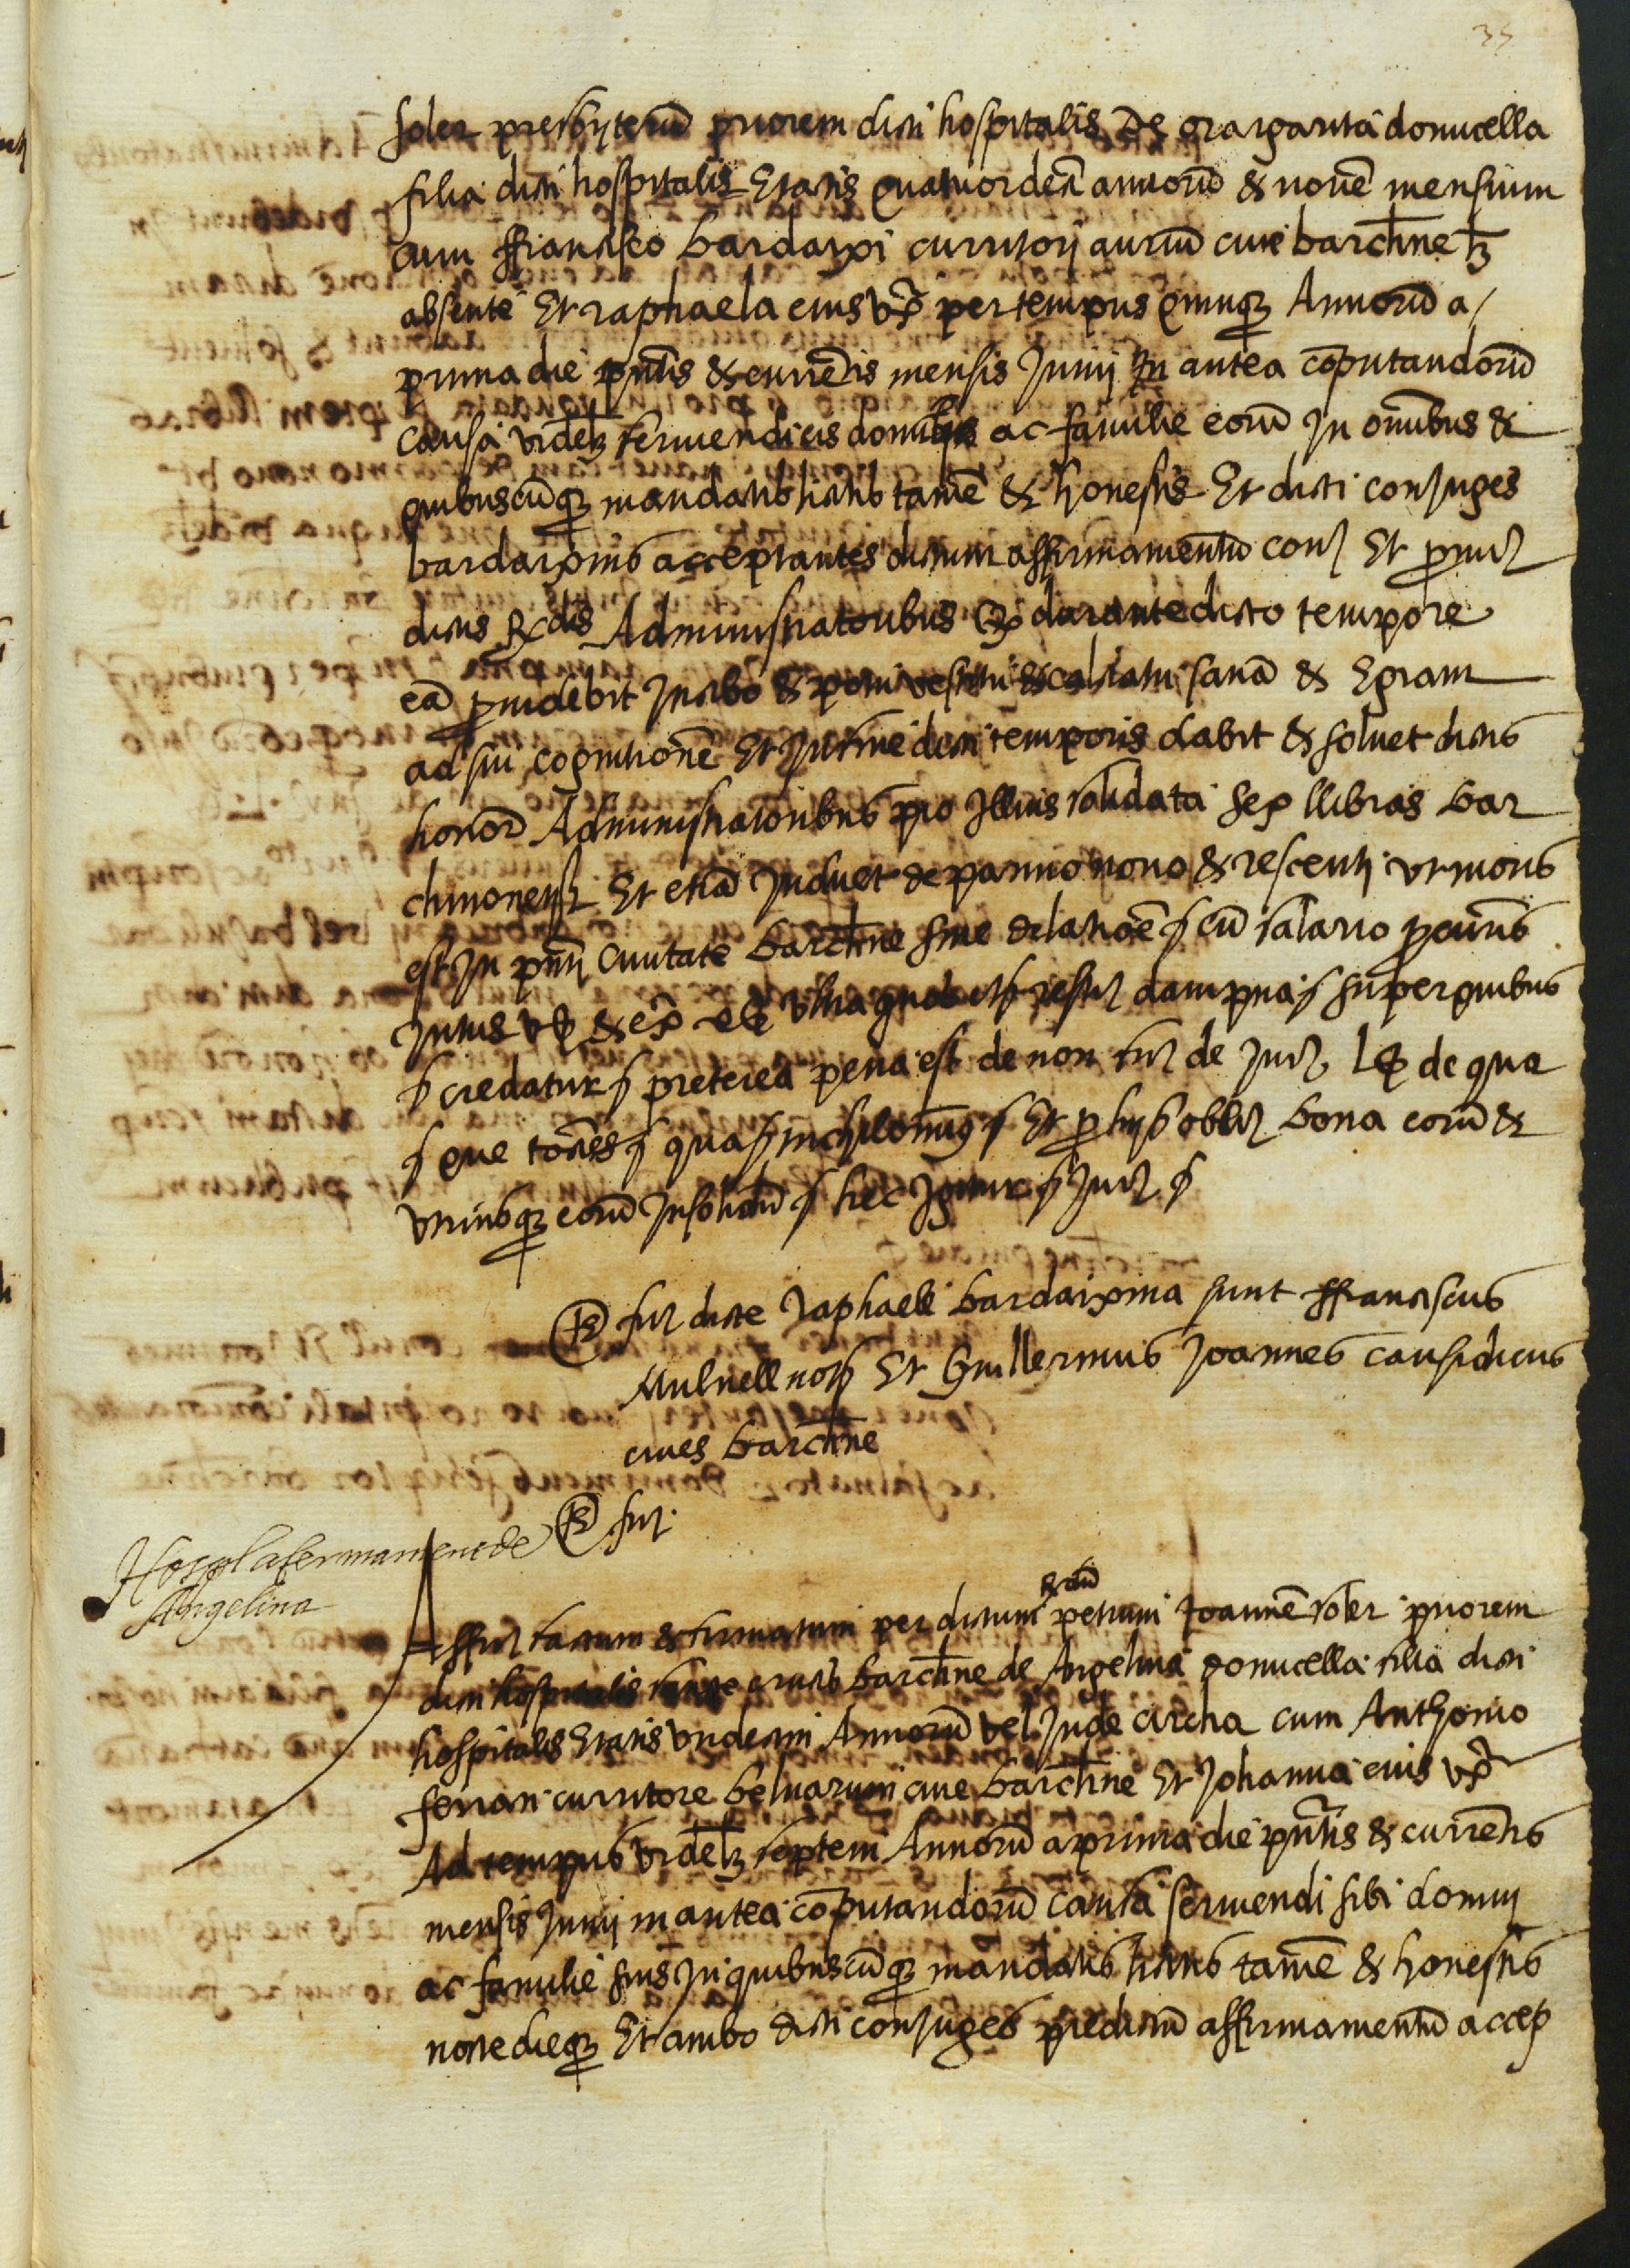 35
soler presbyterũ priorem dicti hospitalis De margarita donucella
filia dicti hospitalis Etatis quatuordecĩ annorũ & nouẽ mensium
cum ffrancisco bardaxi curritori auriũ ciui barchne tz
absente Et raphaela eius vx̃ per tempus quinqz Annorũ a /
prima die pñtis & currẽtis mensis Junij In antea cõputandorũ
causa videlz seruiendi eis domibus ac familie eorũ In omĩbus &
quibuscũqz mandatis licitis tamẽ & honestis Et dicti conjuges
bardaxins acceptantes dictum affirmamentũ con Et promit
dictis Rdis Administratoribus q durante dicto tempore
eã prouidebit In cibo & potu vestitu & calciatu sanã & Egram
ad sui cognitionẽ Et In fine dicti temporis dabit & soluet dictis
honor Administratoribus pro Illius soldata sex llibras bar
chinonens Et etiã Induet de panno nouo & rescenti vt moris
est In pñti Ciuitate barchne sine dilatiõe & cũ salario procuris
Intus vq & ex a& vltra quod est restit dampna & super quibus
& credatur & preterea pena est de non fir de Jur lq de qua
& que tociẽs & qua & nichilomiñ & Et pro hijs oblig bona eorũ &
vtriusqz eorũ Insolidũ & hec Igitur & Jur &
Ts fir dicte Raphaele bardaxina sunt ffranciscus
Mulnell not Et Guillermus Joannes causidicus
ciues barchne
Ts fir
Hospl afermament de
Angelina
& cũ
Affir factum & firmatum per dictum petrum Joannẽ soler priorem
dicti hospitalis sancte crucis barchne de Angelina donucella filia dicti
hospitalis Etatis vndecim Annorũ vel Inde circha cum Anthonio
ferran curritore beluarum ciue barchne Et Johanna eius vx̃
Ad tempus videlz septem Annorũ a prima die pñtis & currẽtis
mensis Junij in antea cõputandorũ causa seruiendi sibi domuj
ac familie suis In quibuscũqz mandatis licitis tamẽ & honestis
nocte dieqz Et ambo dicti conjuges predictũ affirmamentũ accep